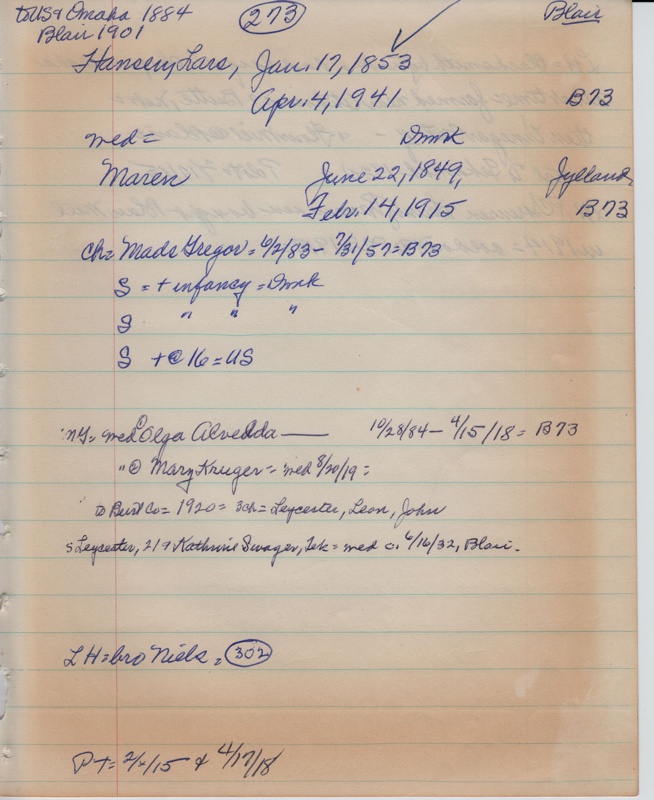 to US & Omaha 1884 (273) Blair
Blair 1901
Hansen, Lars, Jan. 17, 1853
Apr. 4, 1941 B73
med = Dmrk
Maren June 22, 1849, Jylland,
Febr. 14, 1915 B73
Ch = Mads Gregor = 6/2/83 - 7/31/57 = B73
S = + infancy = Dmrk
S " " "
S + @ 16 = US
MG = med ① Olga Alvedda — 10/28/84 - 4/15/18 = B73
" ② Mary Kruger = med 8/20/19 =
to Burt Co = 1920 = 3ch = Leycester, Leon, John
S Leycester, 21 & Kathrine Swager, Tek = med c. 6/16/32, Blair.
LH = bro Niels = (302)
PT = 2/ /15 & 4/17/18